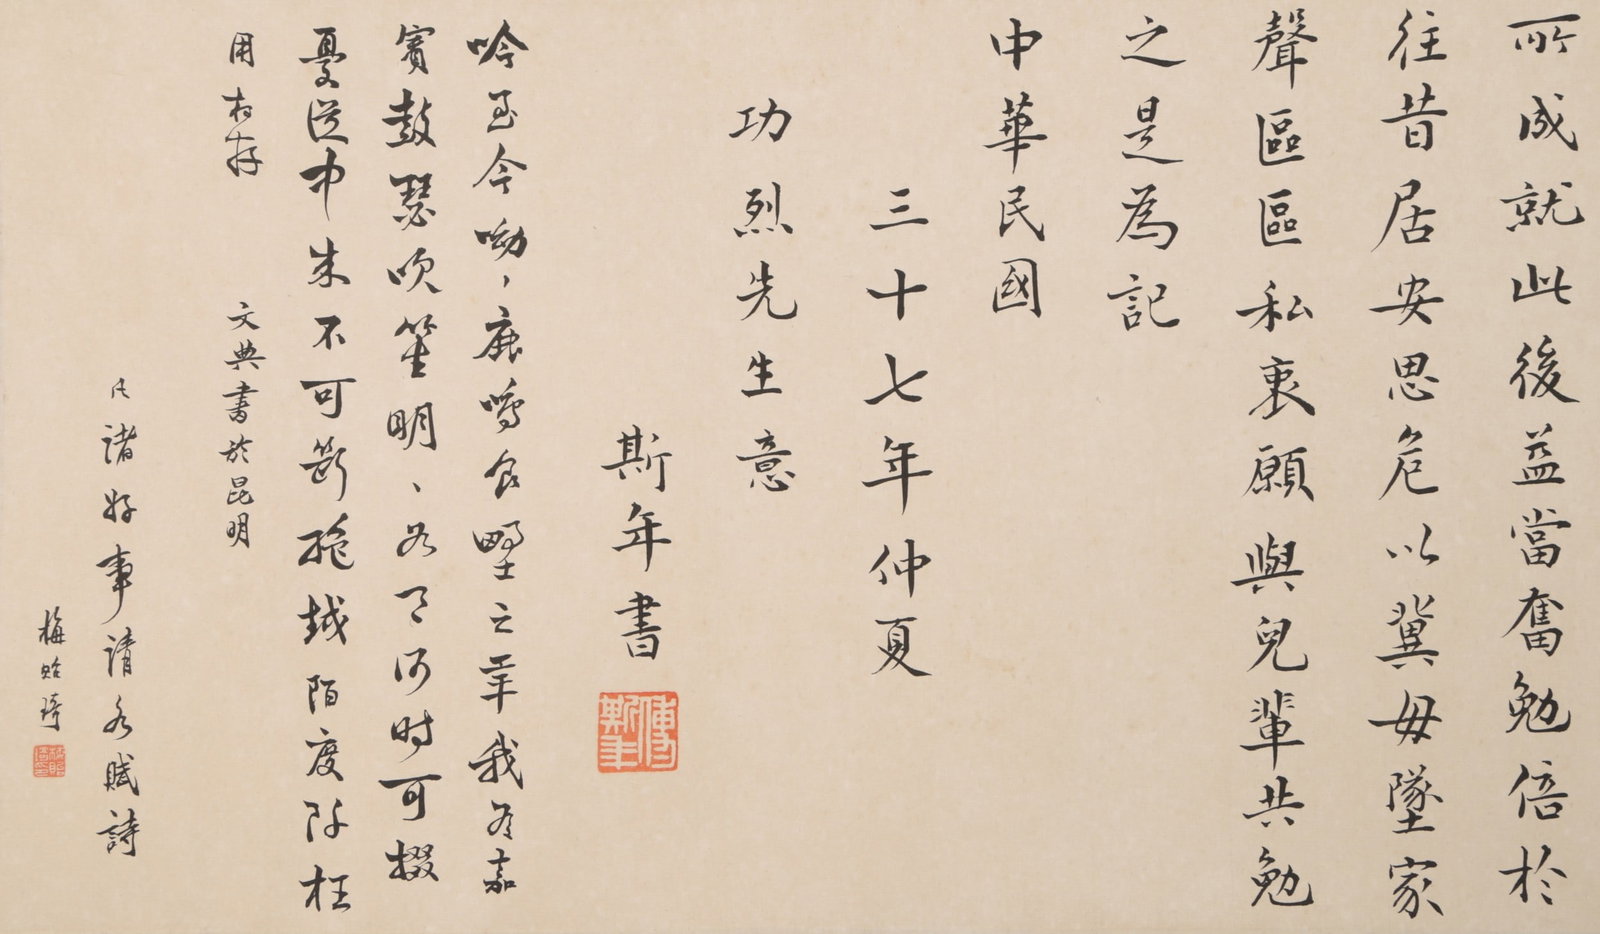 所成就此後益當奮勉倍於
往昔居安思危以冀毋墜家
聲區區私衷願與兒輩共勉
之是為記
中華民國
三十七年仲夏
功烈先生意
斯年書
傅斯年
吟至今呦、鹿鳴食野之苹我有嘉
賓鼓瑟吹笙明、如月何时可掇
憂從中来不可斷絶越陌度阡枉
用相存
文典書於昆明
凡諸好事請各賦詩
梅貽琦